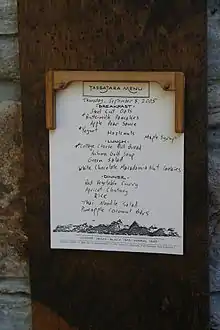 TASSAJARA MENU
Thursday, September 8, 2005
-BREAKFAST-
Steel Cut Oats
Buttermilk Pancakes
Apple Pear Sauce
Yogurt Hazelnuts Maple Syrup
-LUNCH-
*Cottage Cheese Dill Bread
Autumn Gold Soup
Green Salad
White Chocolate Macadamia Nut Cookies
-DINNER-
Hot Vegetable Curry
Apricot Chutney
Rice
Thai Noodle Salad
Pineapple Coconut Bars